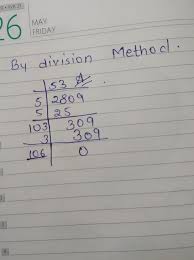 26
MAY
FRIDAY
By division Method.
53 A
5 2809
5 25
103 309
3 309
106 0